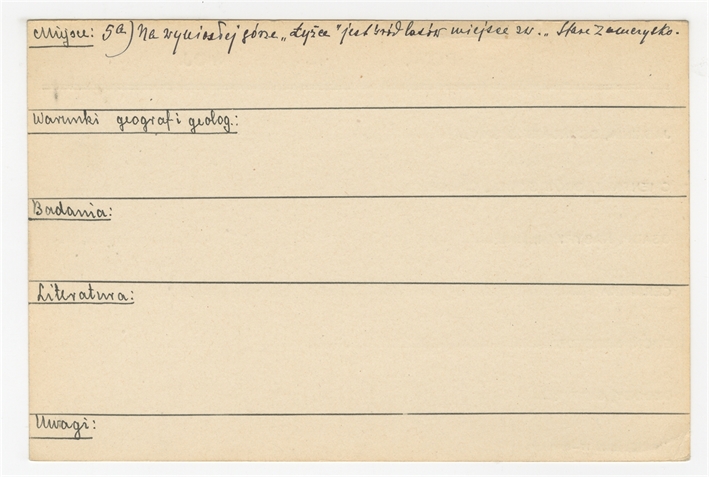 Miejsce: 5a) Na wyniosłej górze „Łyżce" jest śród lasów miejsce zw. „Stare Zamczysko.
Warunki geograf i geolog.:
Badania:
Literatura:
Uwagi: